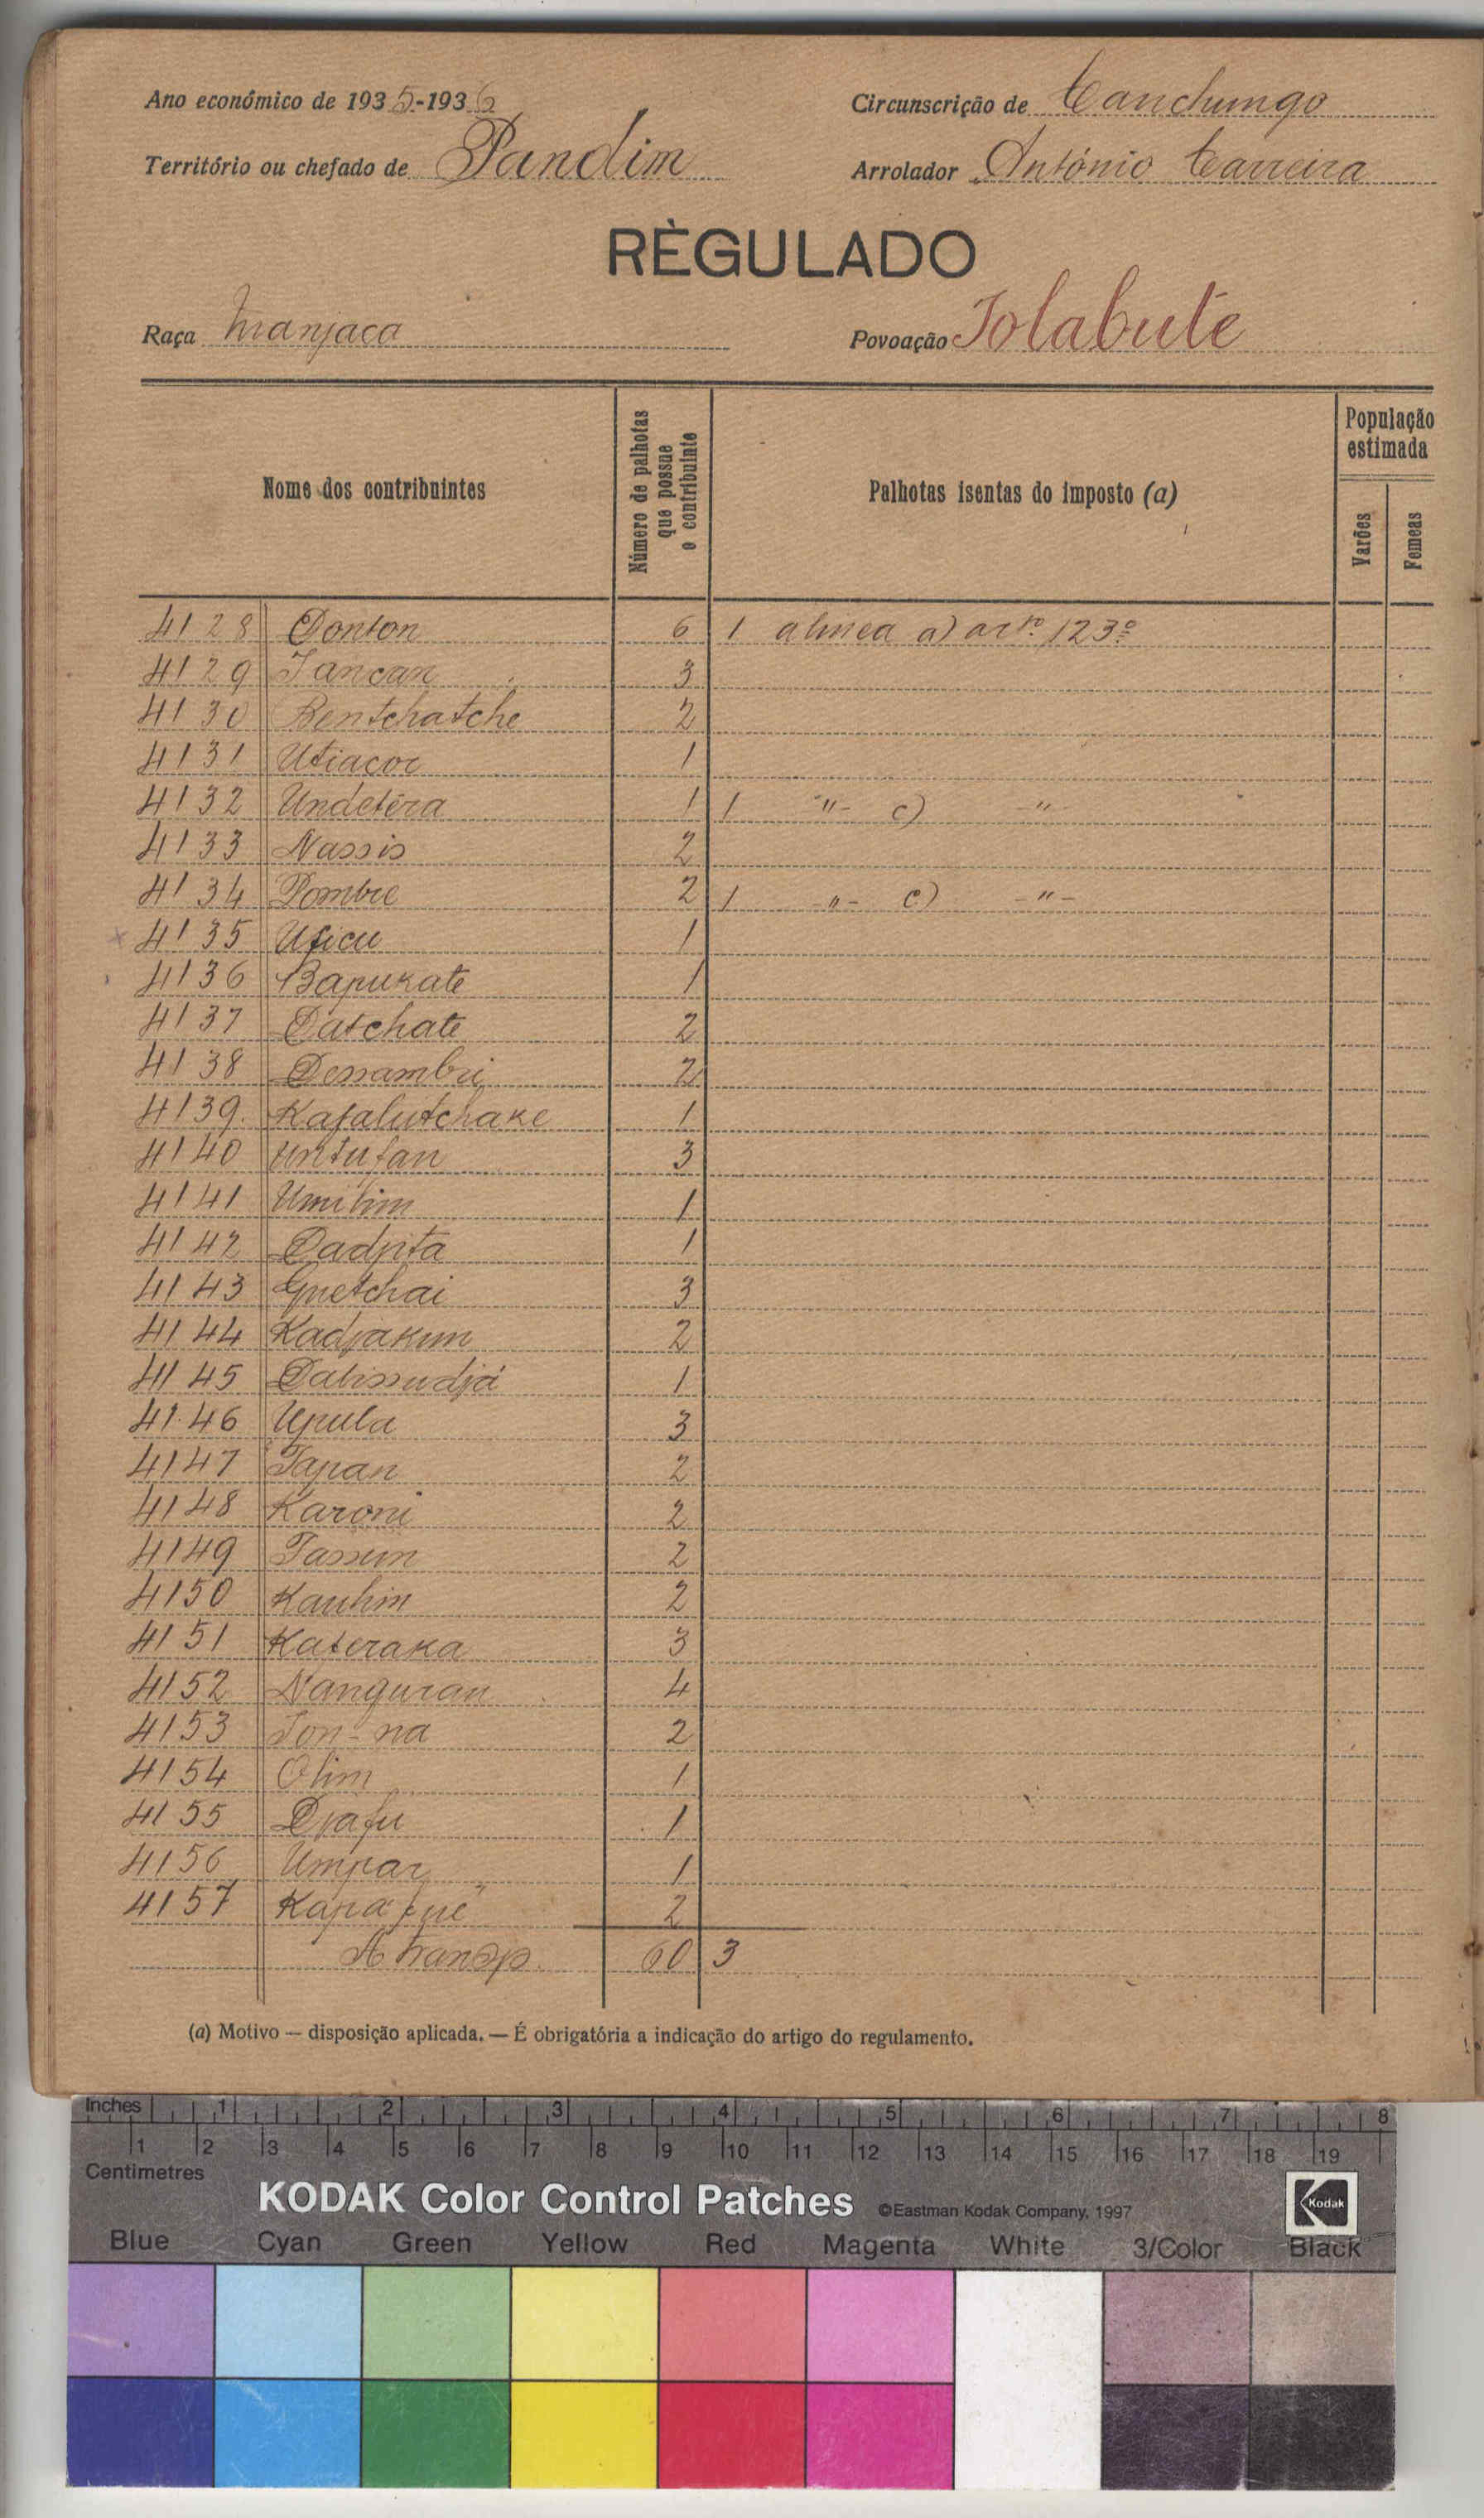 Ano económico de 1935-1936
Circunscrição de Canchungo
Território ou chefado de Pandim
Arrolador António Carreira
RÈGULADO
Raça Manjaca
Povoação Tolabute
Nome dos contribuintes
Número de palhotas que possue o contribuinte
Palhotas isentas do imposto (a)
População estimada
Varões
Femeas
4128 Donton 6 1 alinea a) artº. 123º
4129 Tancan 3
4130 Bentchatche 2
4131 Utiacor 1
4132 Undetéra 1 1 -"- c) -"-
4133 Nassis 2
4134 Pombre 2 1 -"- c) -"-
4135 Uficu 1
4136 Bapukate 1
4137 Datchate 2
4138 Dessambri 2
4139. Kafalutchake 1
4140 Untufan 3
4141 Umilim 1
4142 Dadpita 1
4143 Gnetchai 3
4144 Kadjakim 2
4145 Dabissudjá 1
4146 Upula 3
4147 Tapan 2
4148 Karoni 2
4149 Tassim 2
4150 Kaulim 2
4151 Kateraka 3
4152 Nanguran 4
4153 Ton-na 2
4154 Olim 1
4155 Djafu 1
4156 Umpar 1
4157 2
A transp. 60 3
(a) Motivo — disposição aplicada. — É obrigatória a indicação do artigo do regulamento.
Inches 1 2 3 4 5 6 7 8
1 2 3 4 5 6 7 8 9 10 11 12 13 14 15 16 17 18 19
Centimetres
KODAK Color Control Patches ©Eastman Kodak Company, 1997 Kodak
Blue Cyan Green Yellow Red Magenta White 3/Color Black